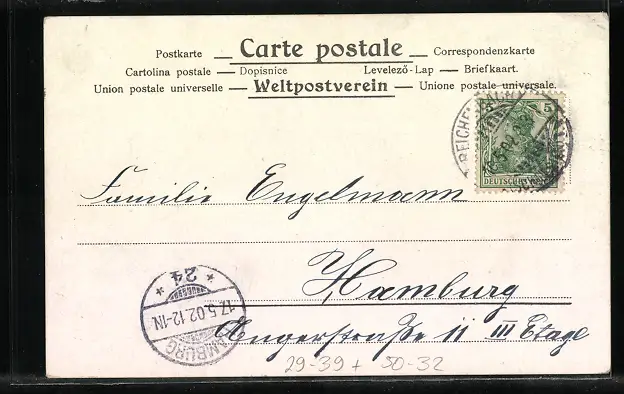 Postkarte — Carte postale — Correspondenzkarte
Cartolina postale — Dopisnice Levelező-Lap — Briefkaart.
Union postale universelle — Weltpostverein — Unione postale universale.
5
DEUTSCHES
Familie Engelmann
Hamburg
Angerstraße 11 III Etage
* 24 *
17.5.02.12-1N
HAMBURG
29-39 + 50-32